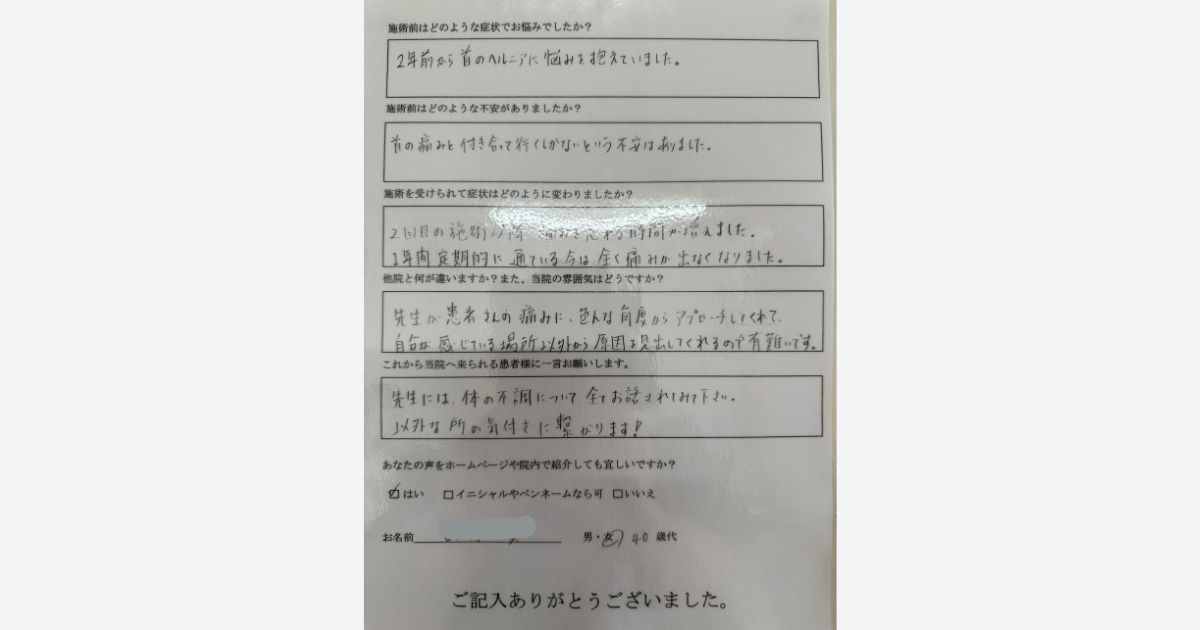 施術前はどのような症状でお悩みでしたか？
2年前から首のヘルニアに悩みを抱えていました。
施術前はどのような不安がありましたか？
首の痛みと付き合って行くしかないという不安はありました。
施術を受けられて症状はどのように変わりましたか？
2回目の施術以降 痛みを忘れる時間が増えました。
1年間定期的に通っている今は全く痛みが出なくなりました。
他院と何が違いますか？また、当院の雰囲気はどうですか？
先生が患者さんの痛みに、色んな角度からアプローチしてくれて、
自分が感じている場所以外から原因を見出してくれるので有難いです。
これから当院へ来られる患者様に一言お願いします。
先生には、体の不調について全てお話されてみて下さい。
以外な所の気付きに繋がります!
あなたの声をホームページや院内で紹介しても宜しいですか？
☑はい □イニシャルやペンネームなら可 □いいえ
お名前 男・女 40 歳代
ご記入ありがとうございました。